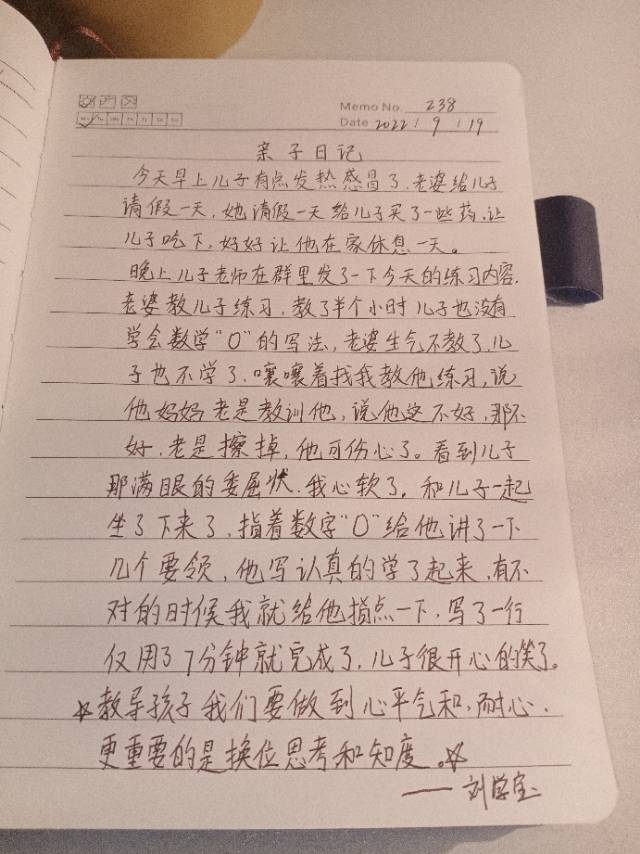 Memo No. 238
Date 2022 / 9 / 19
亲子日记
今天早上儿子有点发热感冒了,老婆给儿子
请假一天,她请假一天给儿子买了一些药,让
儿子吃下,好好让他在家休息一天。
晚上儿子老师在群里发了一下今天的练习内容.
老婆教儿子练习,教了半个小时儿子也没有
学会数学“0”的写法,老婆生气不教了,儿
子也不学了,嚷嚷着找我教他练习,说
他妈妈老是教训他,说他这不好,那不
好,老是擦掉,他可伤心了。看到儿子
那满眼的委屈状,我心软了,和儿子一起
坐了下来了,指着数字“0”给他讲了一下
几个要领,他写认真的学了起来,有不
对的时候我就给他指点一下,写了一行
仅用了7分钟就完成了,儿子很开心的笑了。
☆教导孩子我们要做到心平气和,耐心,
更重要的是换位思考和知度。☆
——刘学宝